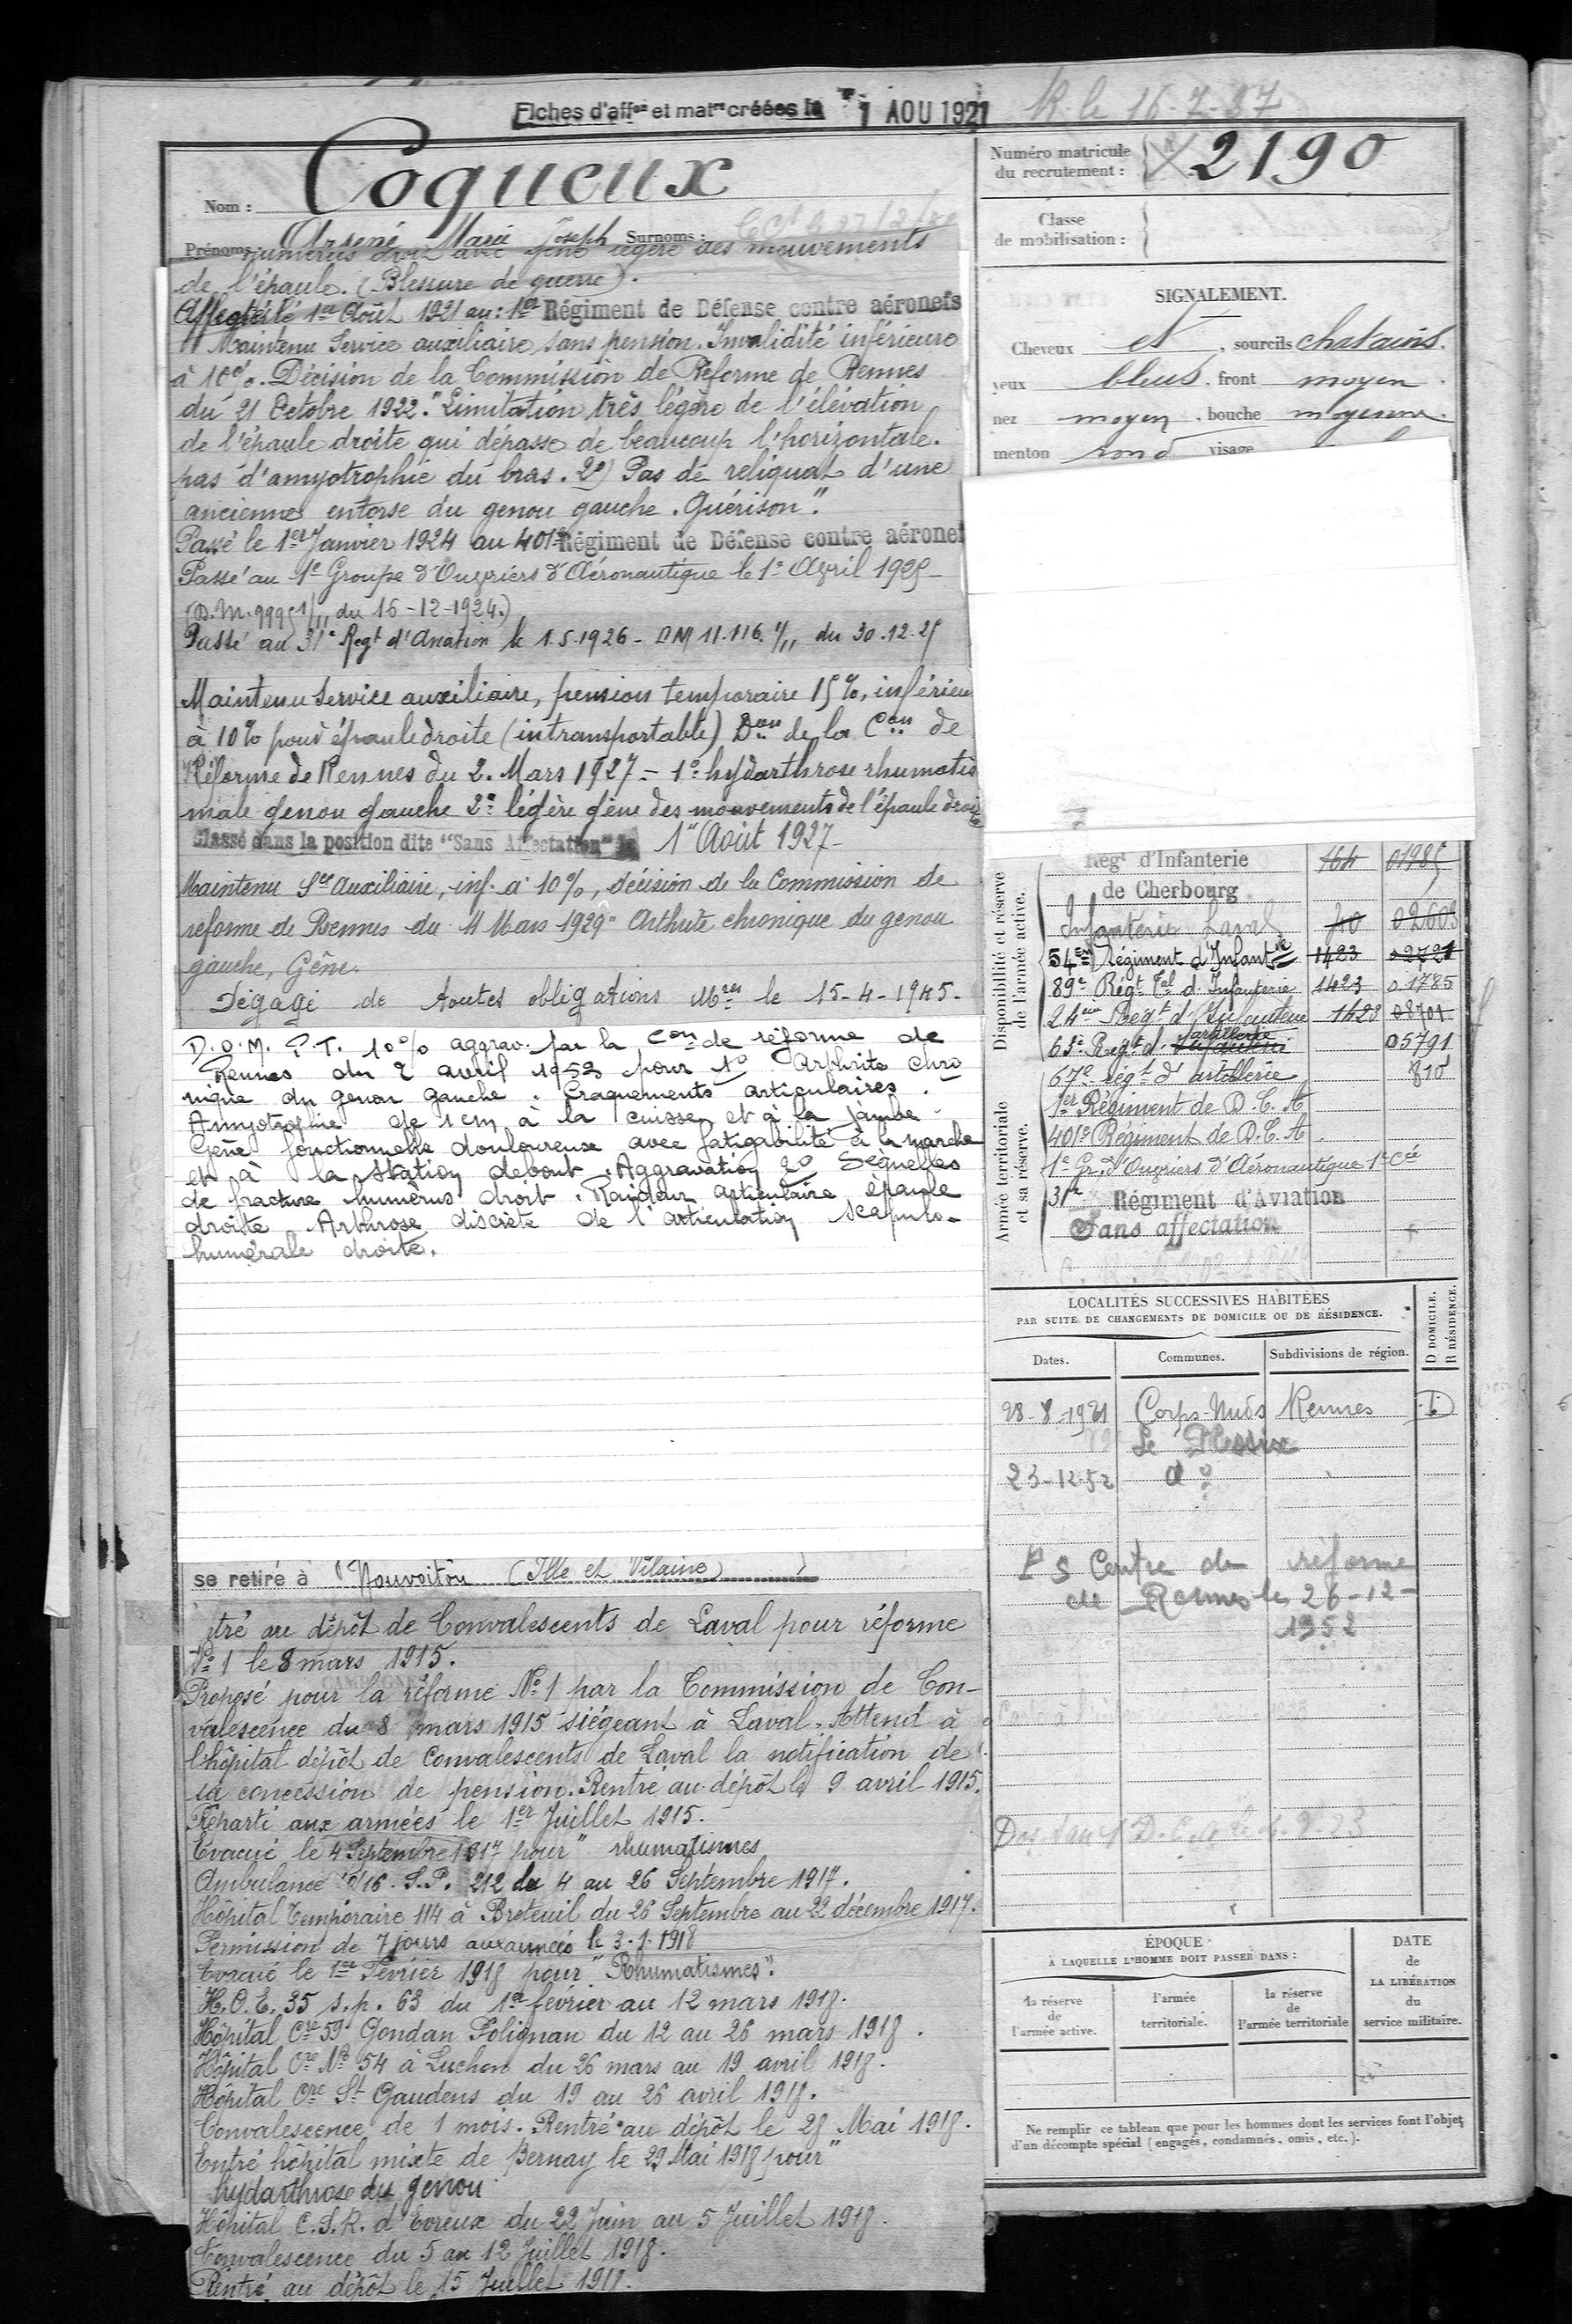 Fiches d'aff^on et mat^re créées le 1 AOU 1921
R. le 16-7-37
Nom : Coqueux
Prénoms : Arsené Marie Joseph Surnoms :
Numéro matricule
du recrutement : 2190
Classe
de mobilisation :
humérus droit avec gêne légère des mouvements
de l'épaule. (Blessure de guerre).
Affecté le 1er Août 1921 au : 1er Régiment de Défense contre aéronefs
Maintenu Service auxiliaire sans pension. Invalidité inférieure
à 10%. Décision de la Commission de Réforme de Rennes
du 21 Octobre 1922. "Limitation très légère de l'élévation
de l'épaule droite qui dépasse de beaucoup l'horizontale.
pas d'amyotrophie du bras. 2°) Pas de reliquat d'une
ancienne entorse du genou gauche. Guérison".
Passé le 1er Janvier 1924 au 401e Régiment de Défense contre aéronef
Passé au 1e Groupe d'Ouvriers d'Aéronautique le 1e Avril 1925 -
(D.M. 9995 1/11 du 16-12-1924.)
Passé au 31e Regt d'Aviation le 1.5.1926 - DM 11.116. 1/11 du 30.12.25
Maintenu Service auxiliaire, pension temporaire 15%, inférieu
à 10% pour épaule droite (intransportable) Don de la Con de
Réforme de Rennes du 2. Mars 1927 - 1° hydarthrose rhumatis
male genou gauche 2° légère gêne des mouvements de l'épaule droite
Classé dans la position dite "Sans Affectation" le 1er Août 1927 -
Maintenu Sce Auxiliaire, inf. à 10%, décision de la Commission de
reforme de Rennes du 4 Mars 1929 " Arthrite chronique du genou
gauche, Gêne.
Dégagé de toutes obligations Mres le 15-4-1945.
D.O.M. P.T. 10% aggrav. par la Con de réforme de
Rennes du 2 avril 1953 pour 1° Arthrite chro
nique du genou gauche. Craquements articulaires.
Amyotrophie de 1 cm à la cuisse et à la jambe.
Gêne fonctionnelle douloureuse avec fatigabilité à la marche
et à la station debout. Aggravation 2° Séquelles
de fracture humérus droit. Raideur articulaire épaule
droite Arthrose discrète de l'articulation scapulo-
humérale droite.
se retire à Nouvoitou (Ille et Vilaine)
itré au dépôt de Convalescents de Laval pour réforme
N° 1 le 8 mars 1915.
Proposé pour la réforme N° 1 par la Commission de Con-
valescence du 8 mars 1915 siégeant à Laval. Attend à
l'hôpital dépôt de Convalescents de Laval la notification de
sa concession de pension. Rentré au dépôt le 9 avril 1915.
Reparti aux armées le 1er Juillet 1915.
Évacué le 4 Septembre 1917 pour " rhumatismes
Ambulance 16. S.P. 212 du 4 au 26 Septembre 1917.
Hôpital Temporaire 114 à Breteuil du 26 Septembre au 22 décembre 1917.
Permission de 7 jours aux armées le 3.1.1918
Évacué le 1er Février 1918 pour "Rhumatismes".
H.O.E. 35 s.p. 63 du 1er février au 12 mars 1918.
Hôpital Cre 59 Gondan Polignan du 12 au 26 mars 1918.
Hôpital Cre N° 54 à Luchon du 26 mars au 19 avril 1918.
Hôpital Cre St Gaudens du 19 au 26 avril 1918.
Convalescence de 1 mois. Rentré au dépôt le 28 Mai 1918.
Entré hôpital mixte de Bernay le 29 Mai 1918 pour "
hydarthrose du genou
Hôpital C.S.R. d'Evreux du 22 Juin au 5 Juillet 1918.
Convalescence du 5 au 12 Juillet 1918.
Rentré au dépôt le 15 Juillet 1918.
SIGNALEMENT.
Cheveux et , sourcils chatains.
yeux bleus. front moyen.
nez moyen. bouche moyenne.
menton rond visage
Disponibilité et réserve
de l'armée active.
Régt d'Infanterie 164 01985
de Cherbourg
Infanterie Laval 40 02603
54em Régiment d'Infantie 1423 02721
89e Régt Tal d'Infanterie 1423 01785
24em Regt d'Infanterie 1423 08701
63e Regt d'Infanterie artillerie 05791
67e régt d'artillerie 810
Armée territoriale
et sa réserve.
1er Régiment de D.C.A
401e Régiment de D.C.A.
1e Gr. d'Ouvriers d'Aéronautique 1e Cie
31e Régiment d'Aviation
Sans affectation
LOCALITÉS SUCCESSIVES HABITÉES
PAR SUITE DE CHANGEMENTS DE DOMICILE OU DE RÉSIDENCE.
Dates. Communes. Subdivisions de région. D DOMICILE. R RÉSIDENCE.
28-8-1921 Corps-Nuds Rennes D
Le Plessix
23-12-52 do
P S Centre de réforme
de Rennes le 26-12-
1952
ÉPOQUE
À LAQUELLE L'HOMME DOIT PASSER DANS :
la réserve
de
l'armée active.
l'armée
territoriale.
la réserve
de
l'armée territoriale
DATE
de
LA LIBÉRATION
du
service militaire.
Ne remplir ce tableau que pour les hommes dont les services font l'objet
d'un décompte spécial (engagés, condamnés, omis, etc.).